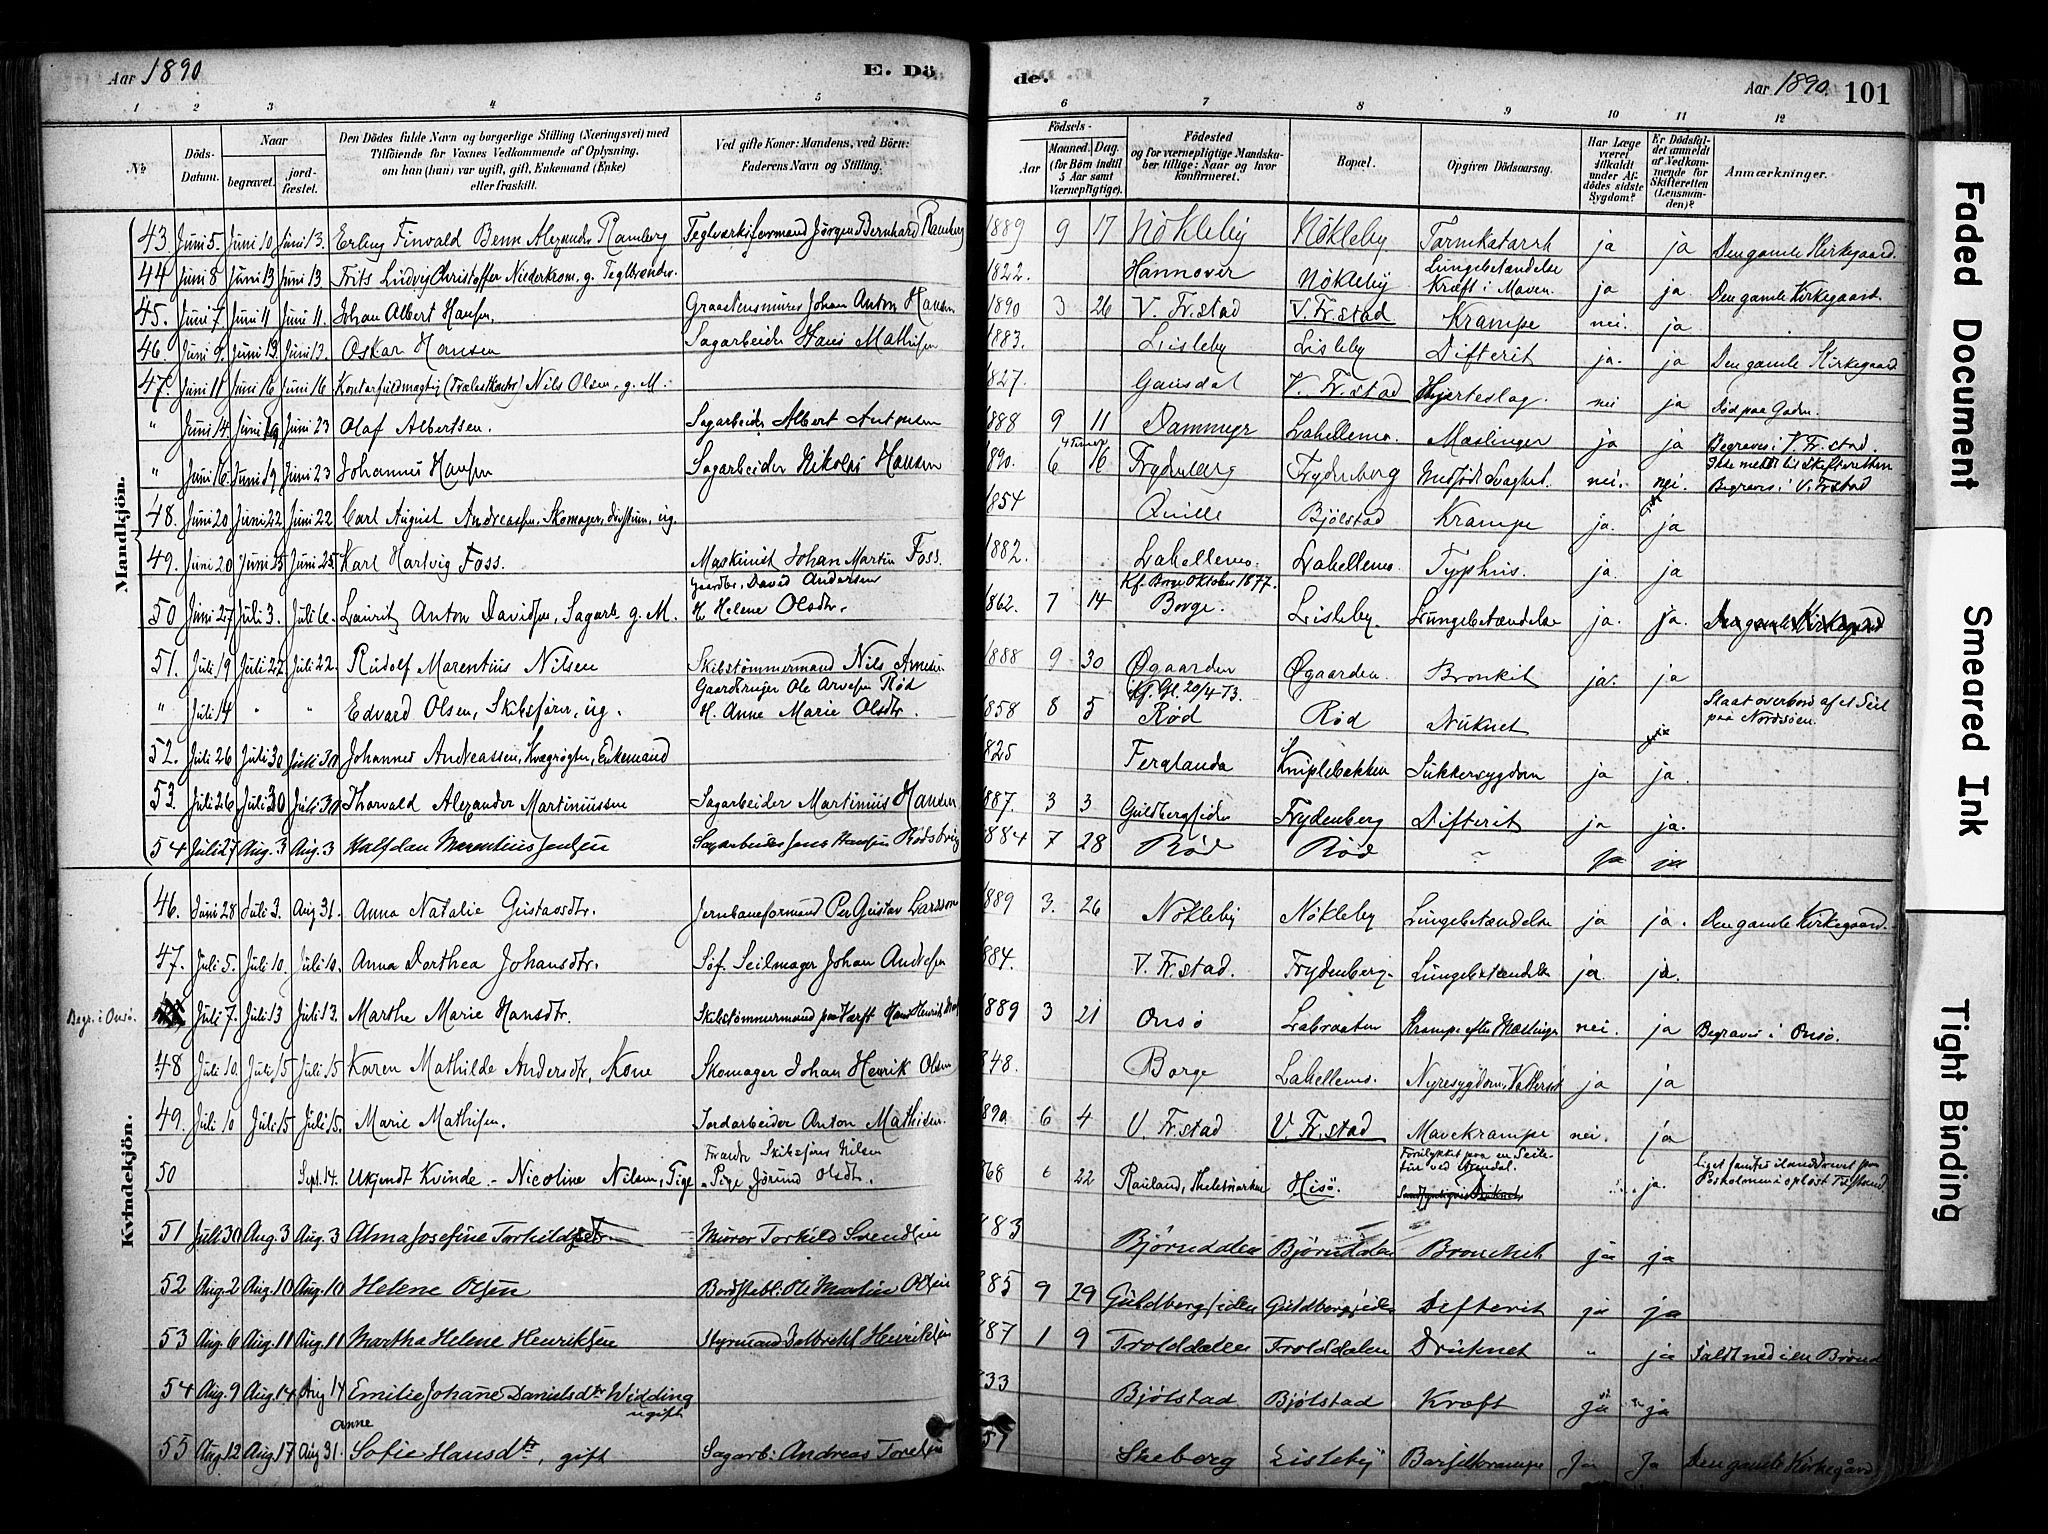 Aar 1890 E. Dö de. Aar 1890. 101
1 2 3 4 5 6 7 8 9 10 11 12
№
Döds-Datum.
Naar
begravet.
jord-fæstet.
Den Dödes fulde Navn og borgerlige Stilling (Næringsvei) med
Tilföiende for Voxnes Vedkommende af Oplysning,
om han (hun) var ugift, gift, Enkemand (Enke)
eller fraskilt.
Ved gifte Koner: Mandens, ved Börn:
Faderens Navn og Stilling.
Födsels-
Aar
Maaned. Dag.
(for Börn indtil
5 Aar samt
Værnepligtige).
Födested
og for værnepligtige Mandsku-
ber tillige: Naar og hvor
konfirmeret.
Bopæl.
Opgiven Dödsaarsag.
Har Læge
været
tilkaldt
under Af-
dödes sidste
Sygdom?
Er Dödsfal-
det anmeldt
af Vedkom-
mende for
Skifteretten
(Lensman-
den)?
Anmærkninger.
Mandkjön.
43. Juni 5. Juni 10 Juni 13. Erling Finvald Benn Alexander Ramberg Teglværksformand Jörgen Bernhard Ramberg 1889 9 17 Nökleby Nökleby Tarmkatarrh ja ja Den gamle Kirkegaard.
44 Juni 8 Juni 13 Juni 13 Frits Ludvig Christoffer Niederkrom, g. Teglbrænder. 1822. Hannover Nökleby Lungebetændelse Kræft i Maven. ja ja. Den gamle Kirkegaard.
45. Juni 7 Juni 11 Juni 11. Johan Albert Hansen. Graastensmurer Johan Anton Hansen 1890 3 26 V. Fr.stad V. Fr.stad Krampe nei. ja
46. Juni 9. Juni 13 Juni 13. Oskar Hansen Sagarbeider Hans Mathisen 1883. Lisleby Lisleby Difterit ja. ja Den gamle Kirkegaard
47. Juni 11 Juni 16 Juni 16. Kontorfuldmægtig Nils Olsen, g. M. 1827. Gausdal V. Fr.stad Hjerteslag. nei ja Död paa Gaden.
" Juni 14. Juni 19 Juni 23 Olaf Albertsen. Sagarbeider Albert 1888 9 11 Dammyr Lahellemo. Mæslinger ja ja Begraves i V. Fr.stad.
" Juni 16. Juni 19 Juni 23 Johannes Hansen Sagarbeider Nikolai Hansen 1890. 6 16 Frydenberg Frydenberg Medfödt Svaghet. nei. nei. Ikke meldt til Skifteretten Begraves i V. Fr.stad
48. Juni 20 Juni 22 Juni 22 Carl August Andreassen, Skomager, ug. 1854 Quille Bjölstad Krampe ja. ja
49. Juni 20 Juni 25 Juni 25. Karl Hartvig Foss. Maskinist Johan Martin Foss. 1882. Lahellemo. Lahellemo. Typhus. ja. ja
50 Juni 27 Juli 3. Juli 6. Laurits Anton Davidsen, Sagarb. g. M. Gaardbr. David Andersen H. Helene Olsdtr. 1862. 7 14 Kf. Borge Oktober 1877. Borge. Lisleby. Lungebetændelse ja. ja. Den gamle Kirkegaard
51. Juli 19 Juli 22 Juli 22. Rudolf Marentius Nilsen Skibstömmermand Nils Arnesen 1888 9 30 Øgaarden Øgaarden. Bronkit ja. ja
" Juli 14 " " Edvard Olsen, Skibsförer, ug. Gaardbruger Ole Arvesen Röd H. Anne Marie Olsdtr. 1858 8 5 Kf. Gl. 20/4 73 Röd Röd Druknet Slaat overbord af et Seil paa Nordsöen.
52. Juli 26 Juli 30 Juli 30 Johannes Andreassen, Kvægrögter, Enkemand 1825 Ferglanda Kniplebakken Sukkersygdom ja ja.
53. Juli 26 Juli 30 Juli 30 Thorvald Alexander Martinussen Sagarbeider Martinius Hansen 1887. 3 3 Guldbergsiden Frydenberg Difterit ja ja.
54 Juli 27 Aug. 3 Aug. 3 Halfdan Marentius Jensen Sagarbeider Jens Hansen Rödsbrug 1884 7 28 Röd Röd " Ja ja
Kvindekjön.
46. Juni 28 Juli 3. Aug 31. Anna Natalie Gustavsdtr. Jernbaneformand Per Gustav Larsson 1889 3. 26 Nökleby Nökleby Lungebetændelse ja ja. Den gamle Kirkegaard.
47. Juli 5. Juli 10. Juli 10. Anna Dorthea Johansdtr. Söf. Seilmager Johan Andresen 1884. V. Fr.stad. Frydenberg. Lungebetændelse ja. ja.
Begr. i Onsö. Juli 7. Juli 13 Juli 13. Marthe Marie Hansdtr. Skibstömmermand paa Værft Hans Henrik 1889 3 21 Onsö Labraaten Krampe efter Mæslinger nei. ja Begraves i Onsö.
48 Juli 10. Juli 15 Juli 15 Karen Mathilde Andersdtr, Kone Skomager Johan Henrik Olsen 1848. Borge Lahellemo. Nyresygdom, Vattersot ja ja
49. Juli 10 Juli 15 Juli 15. Marie Mathisen. Jordarbeider Anton Mathisen. 1890. 6 4 V. Fr.stad V. Fr.stad Mavekrampe nei. ja
50 Sept. 14. Ukjendt Kvinde. - Nicoline Nilsen, Pige Fraadt Skibsförer Nilsen Pige Jörund Olsdtr. 1868 6 22 Rauland, Thelemarken Hisö. Forulykket paa en Seiltur ved Arendal. Druknet ja. Liget funtes ilanddrevet paa i oplöst Tilstand
51 Juli 30 Aug. 3 Aug. 3 Alma Josefine Torkildsdtr. Murer Torkild Svendsen 1883 Bjørndalen Bjørndalen Bronchit ja ja
52 Aug. 2 Aug. 10 Aug. 10 Helene Olsen Bordstabl. Ole Martin Olsen 1885 9 29 Guldbergsiden Guldbergsiden Difterit ja ja
53 Aug. 6 Aug. 11 Aug. 11 Martha Helene Henriksen Styrmand Henriksen 1887 1 9 Trolddalen Trolddalen Druknet " ja Faldt ned i en Brønd
54 Aug. 9 Aug. 14 Aug 14 Emilie Johanne Danielsdtr Widding ugift 1833 Bjølstad Bjølstad Kræft ja ja
55 Aug 12 Aug 17 Aug 31. Anne Sofie Hansdtr, gift Sagarb: Andreas 57 Skeberg Lisleby Barselkrampe Ja Ja Den gamle Kirkegård
Faded Document
Smeared Ink
Tight Binding